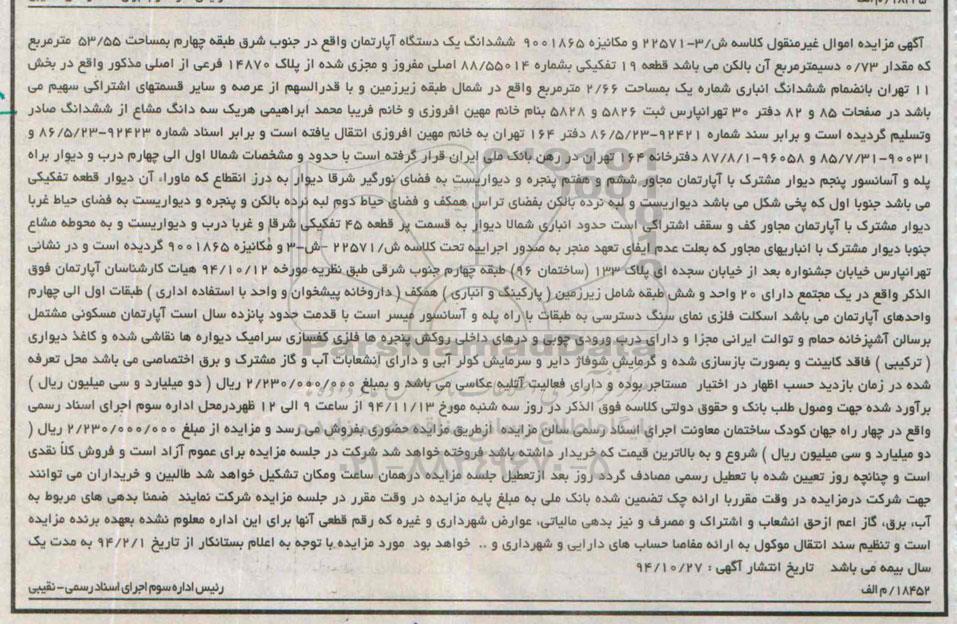 آگهی مزایده اموال غیرمنقول کلاسه ش/۳-۲۲۵۷۱ و مکانیزه ۹۰۰۱۸۶۵ ششدانگ یک دستگاه آپارتمان واقع در جنوب شرق طبقه چهارم بمساحت ۵۳/۵۵ مترمربع
که مقدار ۰/۷۳ دسیمترمربع آن بالکن می باشد قطعه ۱۹ تفکیکی بشماره ۸۸/۵۵۰۱۴ اصلی مفروز و مجزی شده از پلاک ۱۴۸۷۰ فرعی از اصلی مذکور واقع در بخش
۱۱ تهران بانضمام ششدانگ انباری شماره یک بمساحت ۲/۶۶ مترمربع واقع در شمال طبقه زیرزمین و با قدرالسهم از عرصه و سایر قسمتهای اشتراکی سهیم می
باشد در صفحات ۸۵ و ۸۲ دفتر ۳۰ تهرانپارس ثبت ۵۸۲۶ و ۵۸۲۸ بنام خانم مهین افروزی و خانم فریبا محمد ابراهیمی هریک سه دانگ مشاع از ششدانگ صادر
وتسلیم گردیده است و برابر سند شماره ۹۲۴۲۱-۸۶/۵/۲۳ دفتر ۱۶۴ تهران به خانم مهین افروزی انتقال یافته است و برابر اسناد شماره ۹۲۴۲۳-۸۶/۵/۲۳ و
۹۰۰۳۱-۸۵/۷/۳۱ و ۹۶۰۵۸-۸۷/۸/۱ دفترخانه ۱۶۴ تهران در رهن بانک ملی ایران قرار گرفته است با حدود و مشخصات شمالا اول الی چهارم درب و دیوار براه
پله و آسانسور پنجم دیوار مشترک با آپارتمان مجاور ششم و هفتم پنجره و دیواریست به فضای نورگیر شرقا دیوار به درز انقطاع که ماوراء آن دیوار قطعه تفکیکی
می باشد جنوبا اول که پخی شکل می باشد دیواریست و لبه نرده بالکن بفضای تراس همکف و فضای حیاط دوم لبه نرده بالکن و پنجره و دیواریست به فضای حیاط غربا
دیوار مشترک با آپارتمان مجاور کف و سقف اشتراکی است حدود انباری شمالا دیوار به قسمت پر قطعه ۴۵ تفکیکی شرقا و غربا درب و دیواریست و به محوطه مشاع
جنوبا دیوار مشترک با انباریهای مجاور که بعلت عدم ایفای تعهد منجر به صدور اجراییه تحت کلاسه ش/۲۲۵۷۱ -ش-۳ و مکانیزه ۹۰۰۱۸۶۵ گردیده است و در نشانی
تهرانپارس خیابان جشنواره بعد از خیابان سجده ای پلاک ۱۳۳ (ساختمان ۹۶) طبقه چهارم جنوب شرقی طبق نظریه مورخه ۹۴/۱۰/۱۲ هیات کارشناسان آپارتمان فوق
الذکر واقع در یک مجتمع دارای ۲۰ واحد و شش طبقه شامل زیرزمین ( پارکینگ و انباری ) همکف ( داروخانه پیشخوان و واحد با استفاده اداری ) طبقات اول الی چهارم
واحدهای آپارتمان می باشد اسکلت فلزی نمای سنگ دسترسی به طبقات با راه پله و آسانسور میسر است با قدمت حدود پانزده سال است آپارتمان مسکونی مشتمل
برسالن آشپزخانه حمام و توالت ایرانی مجزا و دارای درب ورودی چوبی و درهای داخلی روکش پنجره ها فلزی کفسازی سرامیک دیواره ها نقاشی شده و کاغذ دیواری
( ترکیبی ) فاقد کابینت و بصورت بازسازی شده و گرمایش شوفاژ دایر و سرمایش کولر آبی و دارای انشعابات آب و گاز مشترک و برق اختصاصی می باشد محل تعرفه
شده در زمان بازدید حسب اظهار در اختیار مستاجر بوده و دارای فعالیت آتلیه عکاسی می باشد و بمبلغ ۲/۲۳۰/۰۰۰/۰۰۰ ریال ( دو میلیارد و سی میلیون ریال )
برآورد شده جهت وصول طلب بانک و حقوق دولتی کلاسه فوق الذکر در روز سه شنبه مورخ ۹۴/۱۱/۱۳ از ساعت ۹ الی ۱۲ ظهردرمحل اداره سوم اجرای اسناد رسمی
واقع در چهار راه جهان کودک ساختمان معاونت اجرای اسناد رسمی سالن مزایده ازطریق مزایده حضوری بفروش می رسد و مزایده از مبلغ ۲/۲۳۰/۰۰۰/۰۰۰ ریال (
دو میلیارد و سی میلیون ریال ) شروع و به بالاترین قیمت که خریدار داشته باشد فروخته خواهد شد شرکت در جلسه مزایده برای عموم آزاد است و فروش کلاً نقدی
است و چنانچه روز تعیین شده با تعطیل رسمی مصادف گردد روز بعد ازتعطیل جلسه مزایده درهمان ساعت ومکان تشکیل خواهد شد طالبین و خریداران می توانند
جهت شرکت درمزایده در وقت مقرربا ارائه چک تضمین شده بانک ملی به مبلغ پایه مزایده در وقت مقرر در جلسه مزایده شرکت نمایند ضمنا بدهی های مربوط به
آب، برق، گاز اعم ازحق انشعاب و اشتراک و مصرف و نیز بدهی مالیاتی، عوارض شهرداری و غیره که رقم قطعی آنها برای این اداره معلوم نشده بعهده برنده مزایده
است و تنظیم سند انتقال موکول به ارائه مفاصا حساب های دارایی و شهرداری و .. خواهد بود مورد مزایده با توجه به اعلام بستانکار از تاریخ ۹۴/۲/۱ به مدت یک
سال بیمه می باشد تاریخ انتشار آگهی : ۹۴/۱۰/۲۷
۱۸۴۵۲/ م الف رئیس اداره سوم اجرای اسناد رسمی - نقیبی